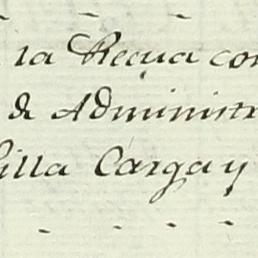 la Recua con
de Administr
illa Carga y